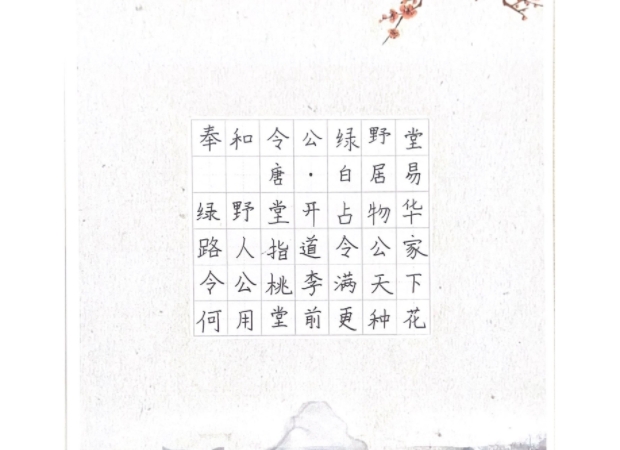 奉和令公绿野堂
唐·白居易
绿野堂开占物华
路人指道令公家
令公桃李满天下
何用堂前更种花